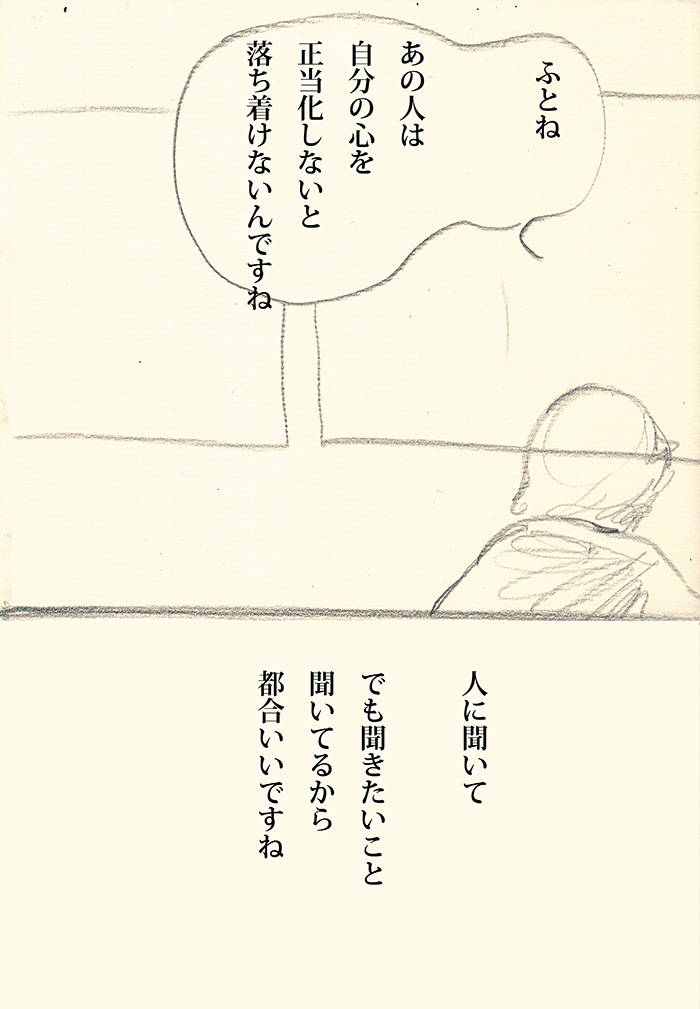 ふとね
あの人は
自分の心を
正当化しないと
落ち着けないんですね
人に聞いて
でも聞きたいこと
聞いてるから
都合いいですね